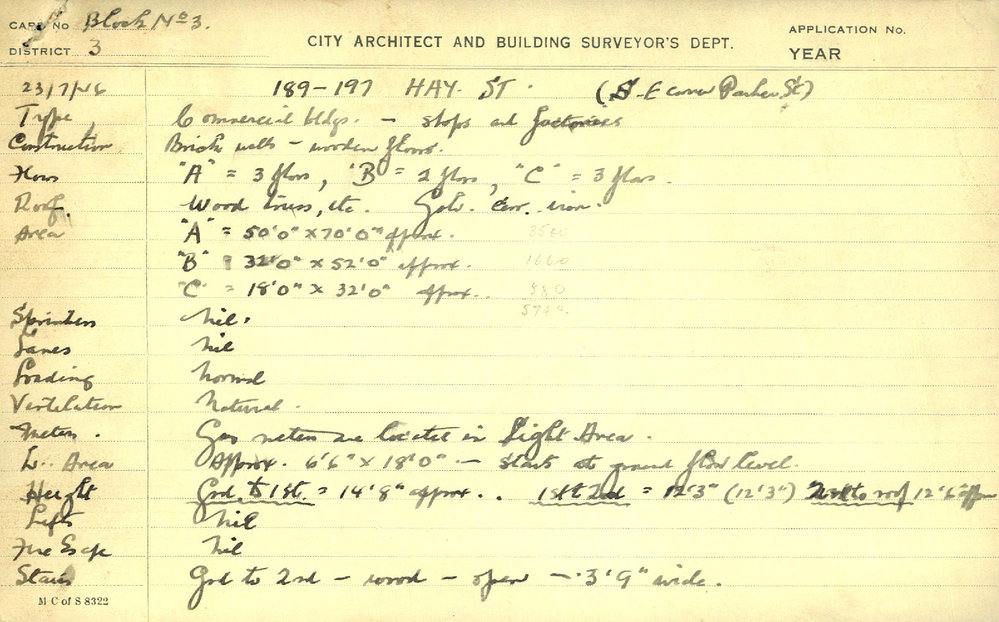 CARD No Block No 3.
DISTRICT 3
CITY ARCHITECT AND BUILDING SURVEYOR'S DEPT.
APPLICATION No.
YEAR
23/7/46 189-197 HAY. ST. (S.E corner Parker St)
Type, Commercial bldgs. - shops and factories
Construction Brick walls - wooden floors.
Floors "A" = 3 floors, "B" = 2 floors, "C" = 3 floors.
Roof. Wood truss, etc. Galv. Corr. iron.
Area "A" = 50'0" x 70'0" approx. 3500
"B" = 32'0" x 52'0" approx. 1660
"C" = 18'0" x 32'0" approx.. 580
Sprinklers nil.
Lanes nil
Loading Normal
Ventilation Natural.
Meters. Gas meters are located in Light Area.
L. Area Approx. 6'6" x 18'0" - starts at ground floor level.
Height Grd. to 1st = 14'8" approx.. 1st to 2nd = 12'3" (12'3") 2nd to roof 12'6" approx
Lifts nil
Fire Escape nil
Stairs Grd to 2nd - wood - open - 3'9" wide.
M C of S 8322